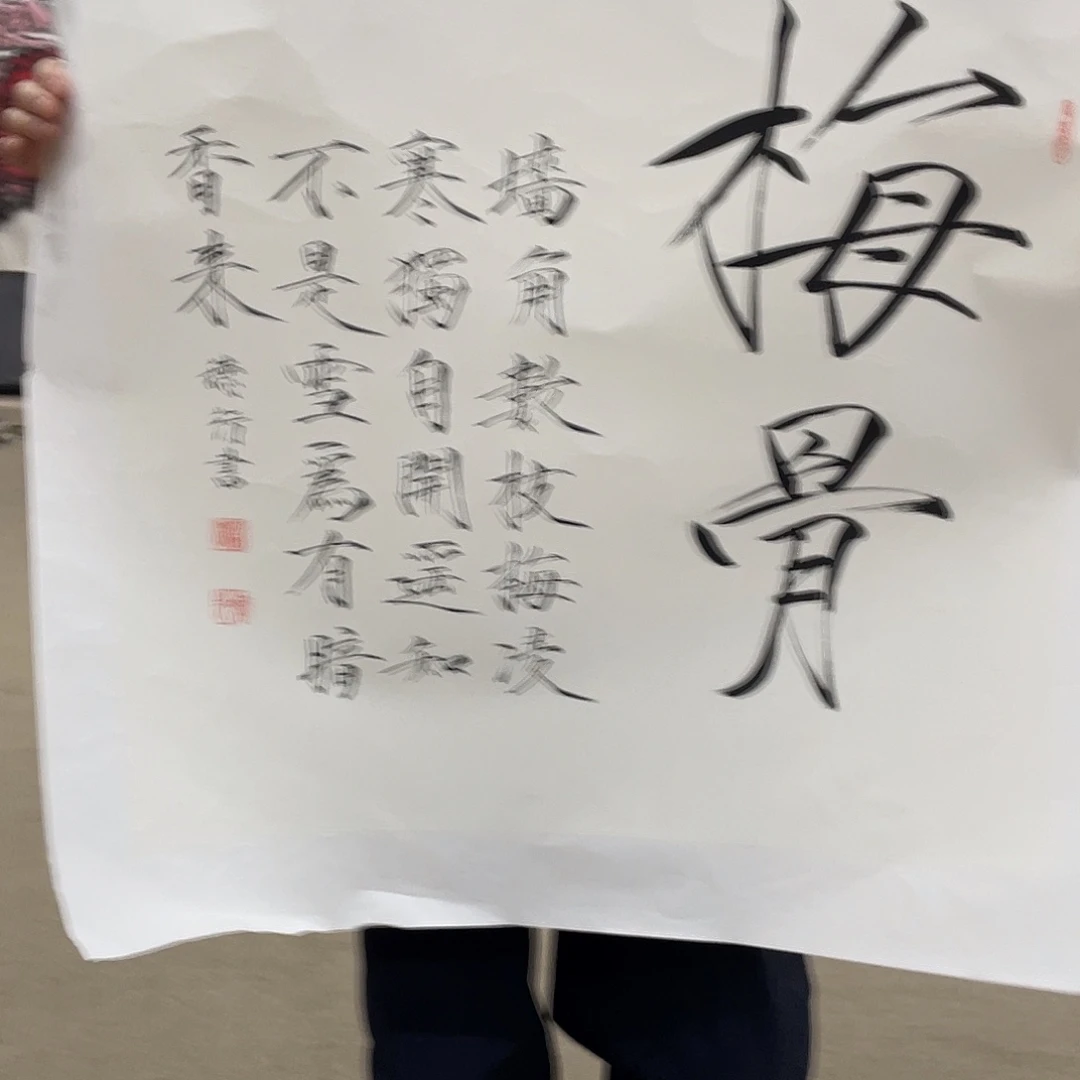 梅骨
墻角數枝梅凌
寒獨自開遥知
不是雪爲有暗
香来
書